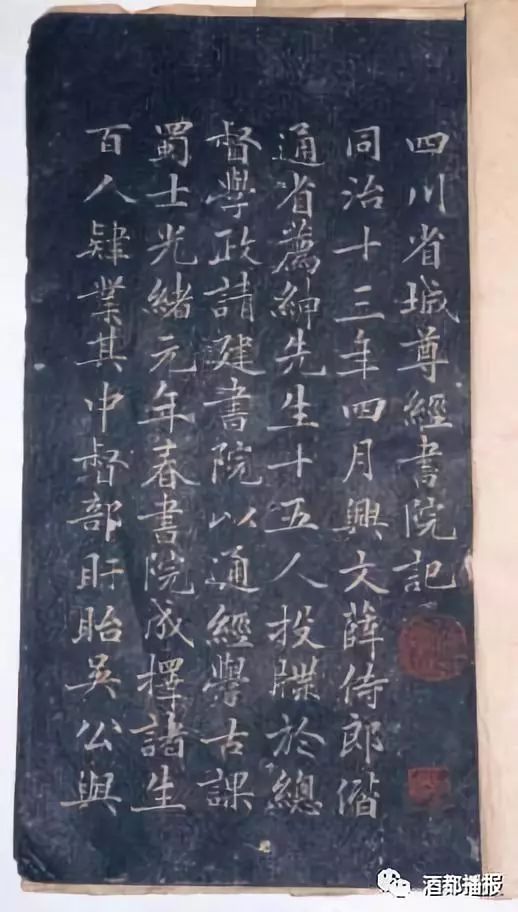 四川省城尊經書院記
同治十三年四月興文薛侍郎偕
通省薦紳先生十五人投牒於總
督學政請建書院以通經學古課
蜀士光緒元年春書院成擇諸生
百人肄業其中督部盱眙吳公與
酒都播报